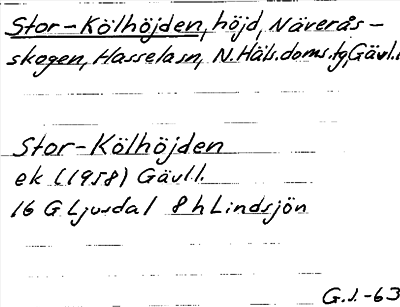 Stor-Kölhöjden, höjd, Näverås-
skogen, Hasselasn, N.Häls.doms.tg, Gävl.l
Stor-Kölhöjden
ek (1958) Gävl.l.
16 G Ljusdal 8 h Lindsjön
G.J.-63